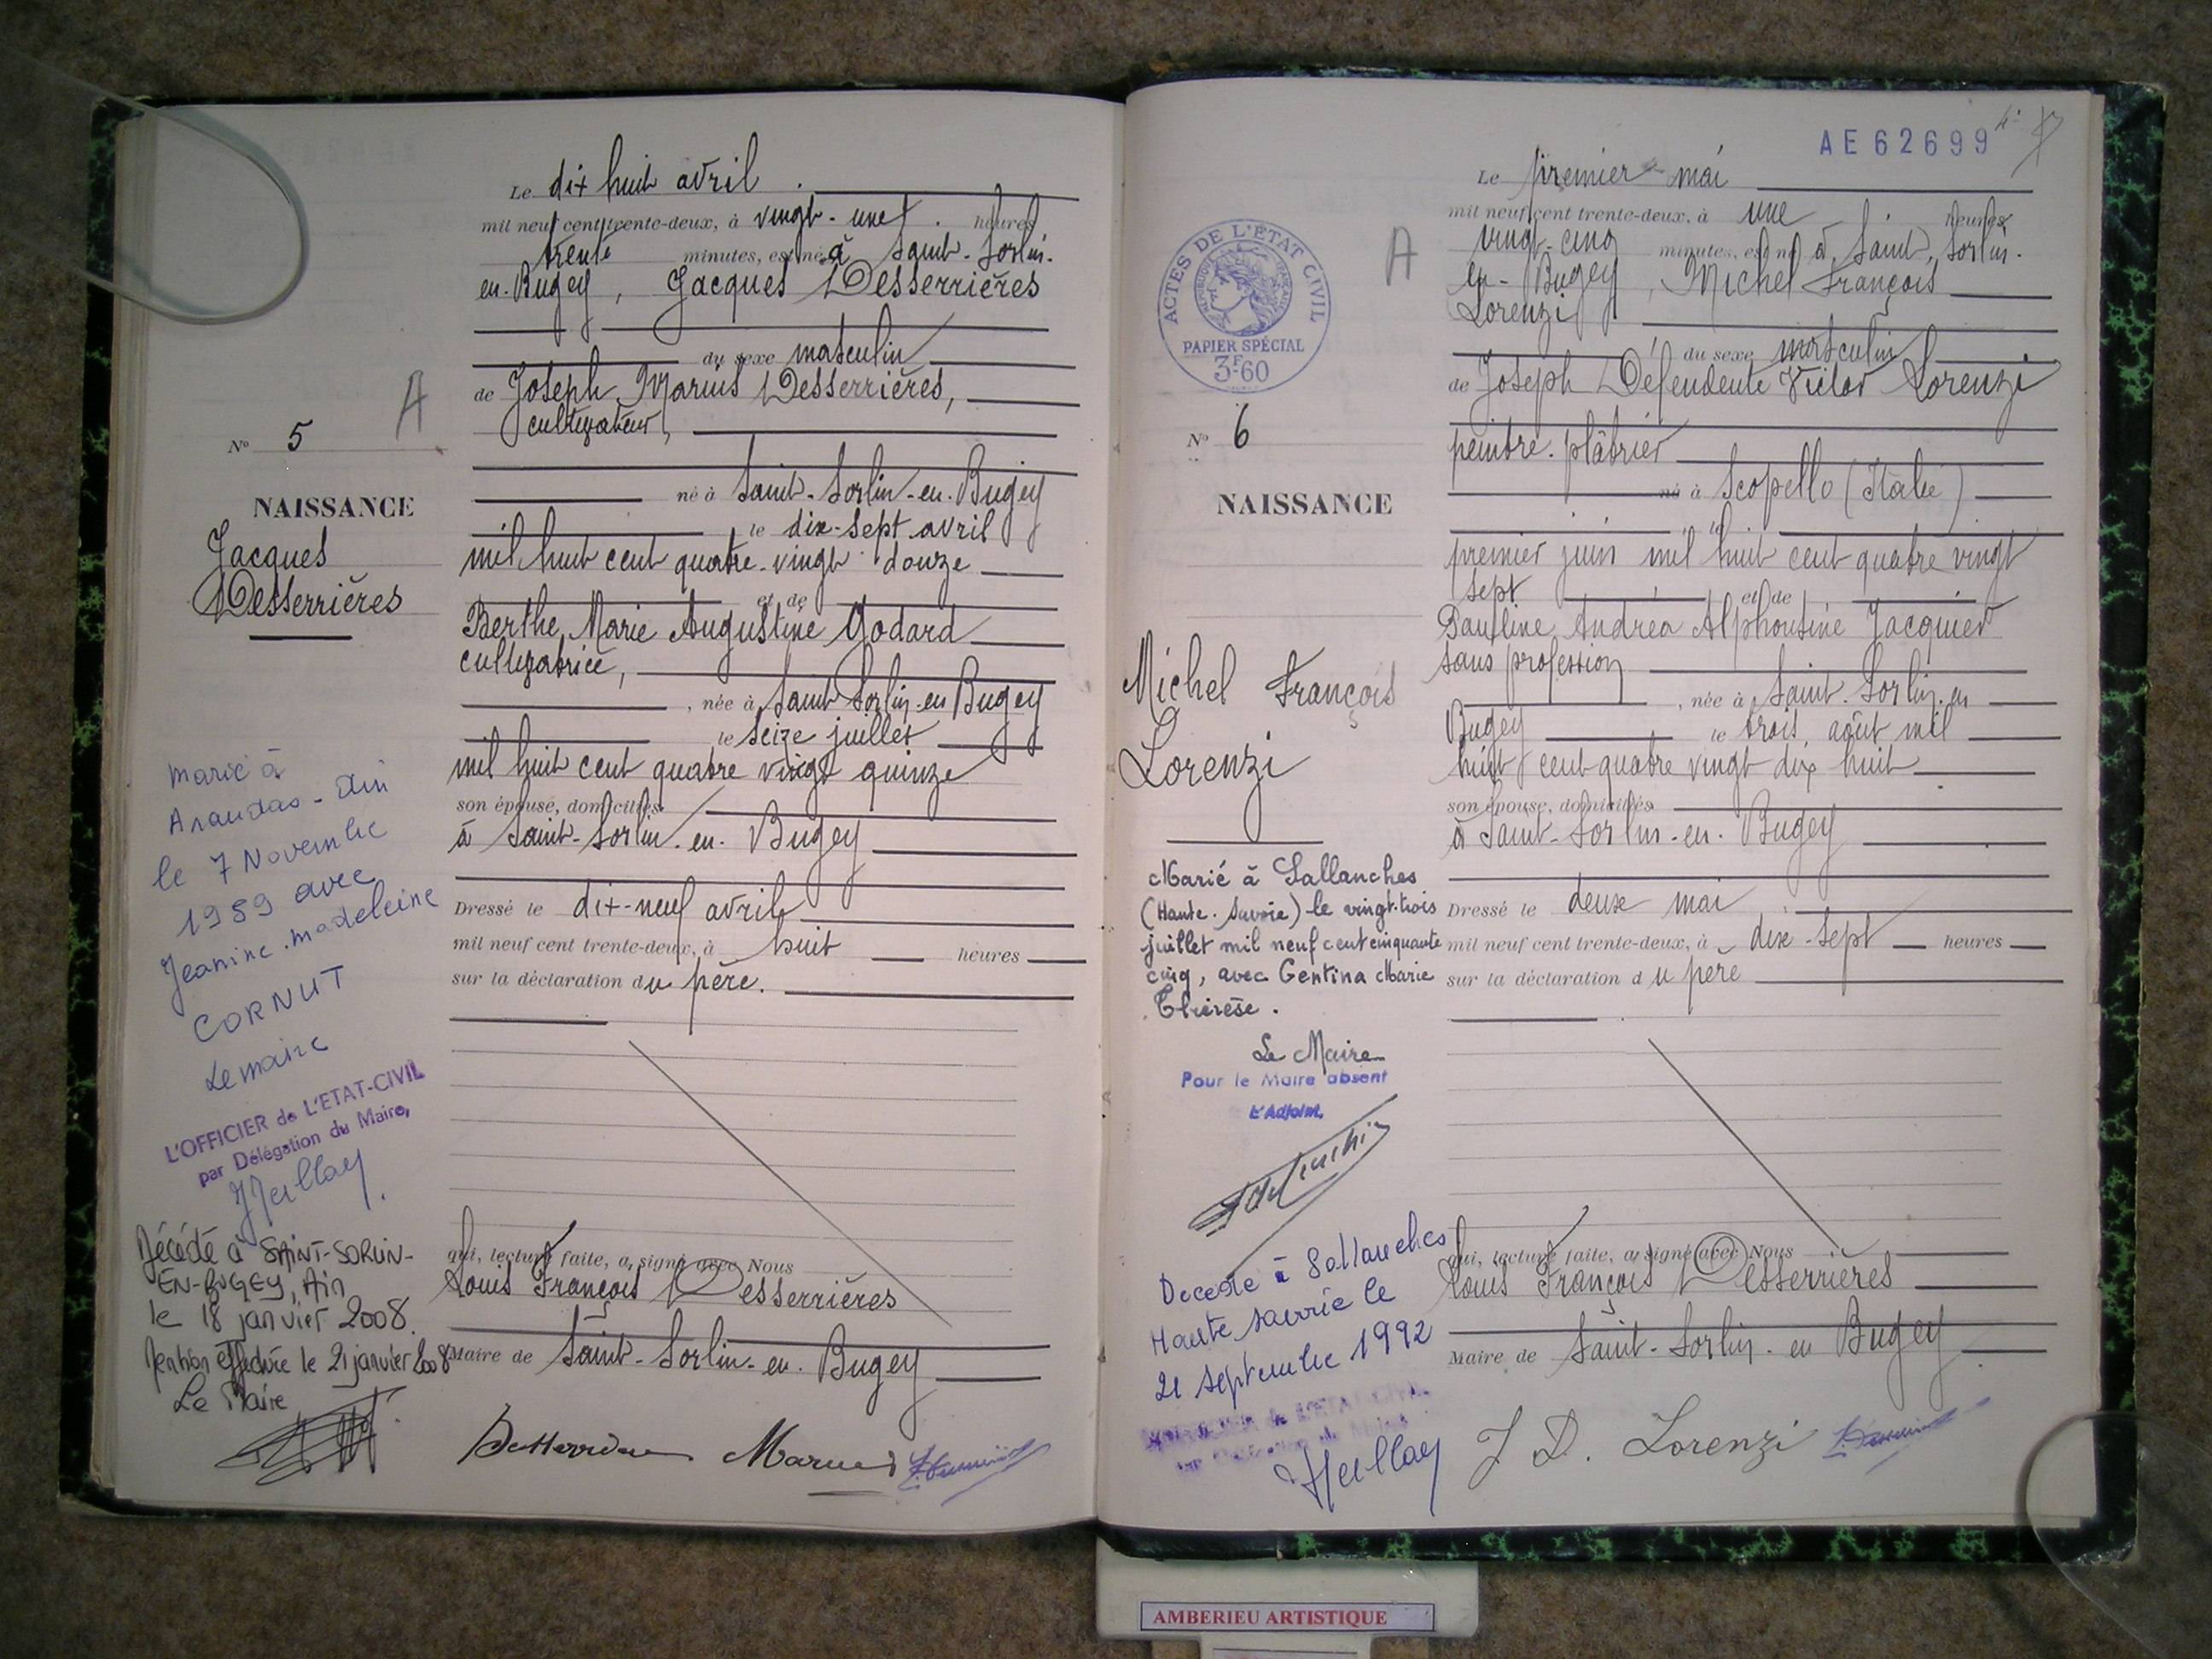 Le dix huit avril.
mil neuf cent trente-deux, à vingt-une heures
trente minutes, est né à Saint-Sorlin-
en-Bugey, Jacques Desserrières
du sexe masculin
de Joseph Marius Desserrières,
cultivateur,
né à Saint-Sorlin-en-Bugey
le dix-sept avril
mil huit cent quatre-vingt douze
et de
Berthe Marie Augustine Godard
cultivatrice,
, née à Saint Sorlin-en Bugey
le seize juillet
mil huit cent quatre vingt quinze
son épouse, domiciliés
à Saint-Sorlin-en-Bugey
Dressé le dix-neuf avril
mil neuf cent trente-deux, à huit heures
sur la déclaration du père.
qui, lecture faite, a signé avec Nous
Louis François Desserrières
Maire de Saint-Sorlin-en-Bugey
Marius
A
No 5
NAISSANCE
Jacques
Desserrières
Marié à
Arandas - Ain
le 7 Novembre
1989 avec
Jeanine.Madeleine
CORNUT
Le maire
L'OFFICIER de L'ETAT-CIVIL
par Délégation du Maire,
Décédé à SAINT-SORLIN-
EN-BUGEY, Ain
le 18 janvier 2008.
Mention effectuée le 21 janvier 2008
Le Maire
AE62699
ACTES DE L'ÉTAT CIVIL
RÉPUBLIQUE FRANÇAISE
PAPIER SPÉCIAL
3F60
A
No 6
NAISSANCE
Michel François
Lorenzi
Marié à Sallanches
(Haute-Savoie) le vingt-trois
juillet mil neuf cent cinquante
cinq, avec Gentina Marie
Thérèse.
Le Maire
Pour le Maire absent
L'Adjoint,
Décédé à Sallanches
Haute Savoie le
21 septembre 1992
Le premier mai
mil neuf cent trente-deux, à une heures
vingt-cinq minutes, est né à Saint-Sorlin-
en-Bugey, Michel François
Lorenzi
du sexe masculin
de Joseph Défendente Victor Lorenzi
peintre-plâtrier
né à Scopello (Italie)
le
premier juin mil huit cent quatre vingt
sept et de
Pauline Andréa Alphonsine Jacquier
sans profession
, née à Saint-Sorlin-en
Bugey le trois août mil
huit cent quatre vingt dix huit
son épouse, domiciliés
à Saint-Sorlin-en-Bugey
Dressé le deux mai
mil neuf cent trente-deux, à dix-sept heures
sur la déclaration du père
qui, lecture faite, a signé avec Nous
Louis François Desserrières
Maire de Saint-Sorlin-en Bugey
J. D. Lorenzi
AMBERIEU ARTISTIQUE